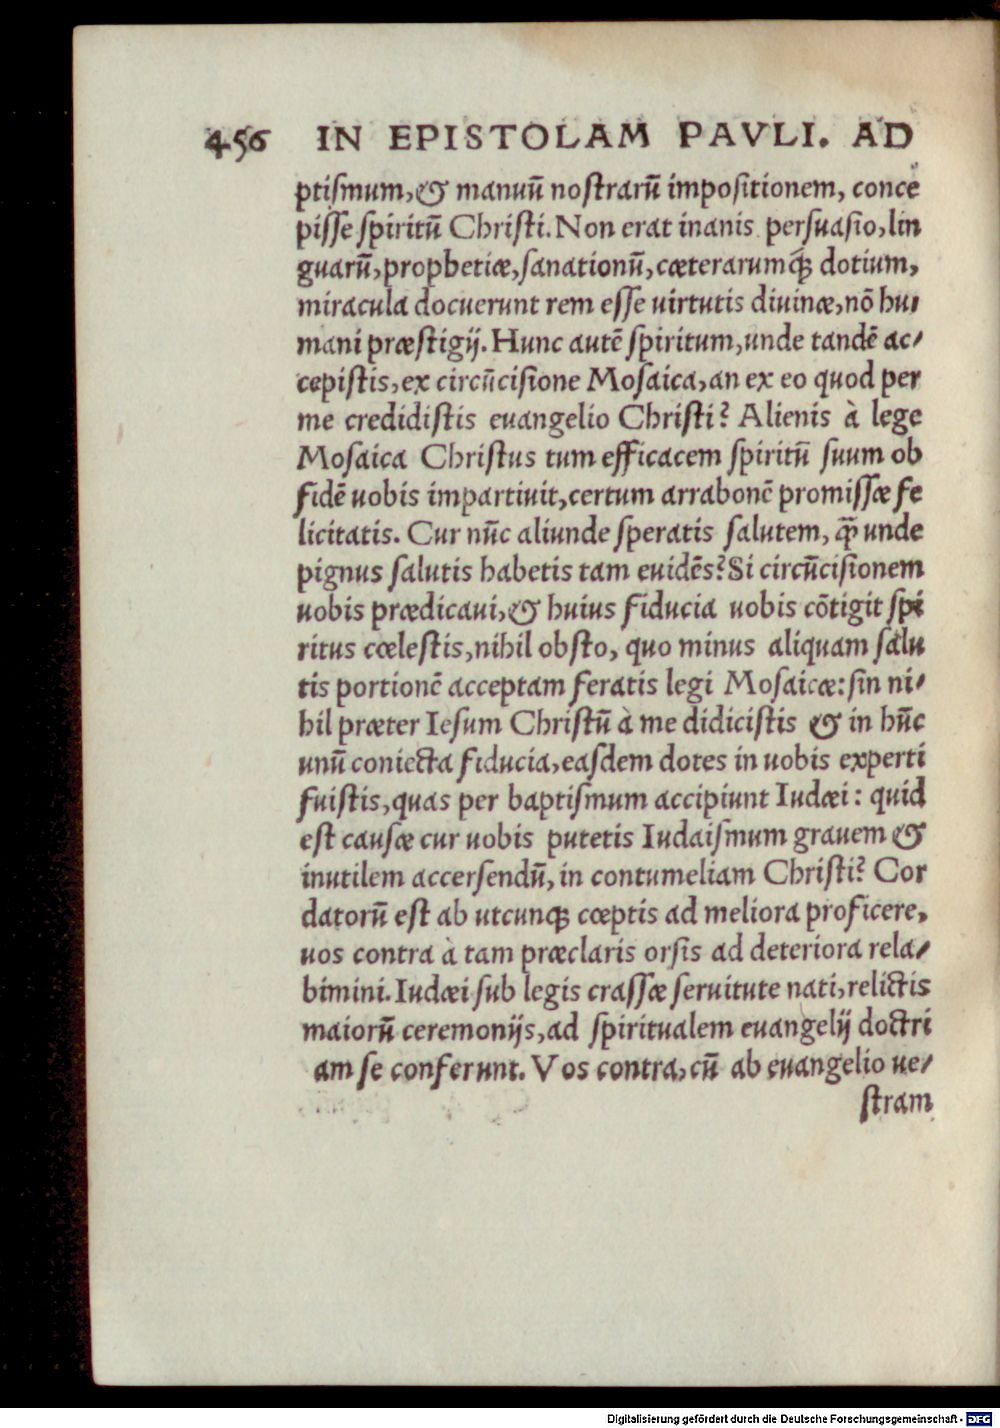 456 IN EPISTOLAM PAVLI. AD
ptiſmum, & manuũ noſtrarũ impoſitionem, conce
piſſe ſpiritũ Chriſti. Non erat inanis perſuaſio, lin
guarũ, prophetiæ, ſanationũ, cæterarumq́ꝫ dotium,
miracula docuerunt rem eſſe uirtutis diuinæ, nõ hu/
mani præſtigij. Hunc autẽ ſpiritum, unde tandẽ ac/
cepiſtis, ex circũciſione Moſaica, an ex eo quod per
me credidiſtis euangelio Chriſti? Alienis à lege
Moſaica Chriſtus tum efficacem ſpiritũ ſuum ob
fidẽ uobis impartiuit, certum arrabonẽ promiſſæ fe
licitatis. Cur nũc aliunde ſperatis ſalutem, q̃ꝫ unde
pignus ſalutis habetis tam euidẽs? Si circũciſionem
uobis prædicaui, & huius fiducia uobis cõtigit ſpi
ritus cœleſtis, nihil obſto, quo minus aliquam ſalu
tis portionẽ acceptam feratis legi Moſaicæ: ſin ni/
hil præter Ieſum Chriſtũ à me didiciſtis & in hũc
unũ coniecta fiducia, eaſdem dotes in uobis experti
fuiſtis, quas per baptiſmum accipiunt Iudæi: quid
eſt cauſæ cur uobis putetis Iudaiſmum grauem &
inutilem accerſendũ, in contumeliam Chriſti? Cor
datorũ eſt ab utcunqꝫ cœptis ad meliora proficere,
uos contra à tam præclaris orſis ad deteriora rela/
bimini. Iudæi ſub legis craſſæ ſeruitute nati, relictis
maiorũ ceremonijs, ad ſpiritualem euangelij doctri
am ſe conferunt. Vos contra, cũ ab euangelio ue/
ſtram
Digitalisierung gefördert durch die Deutsche Forschungsgemeinschaft - DFG